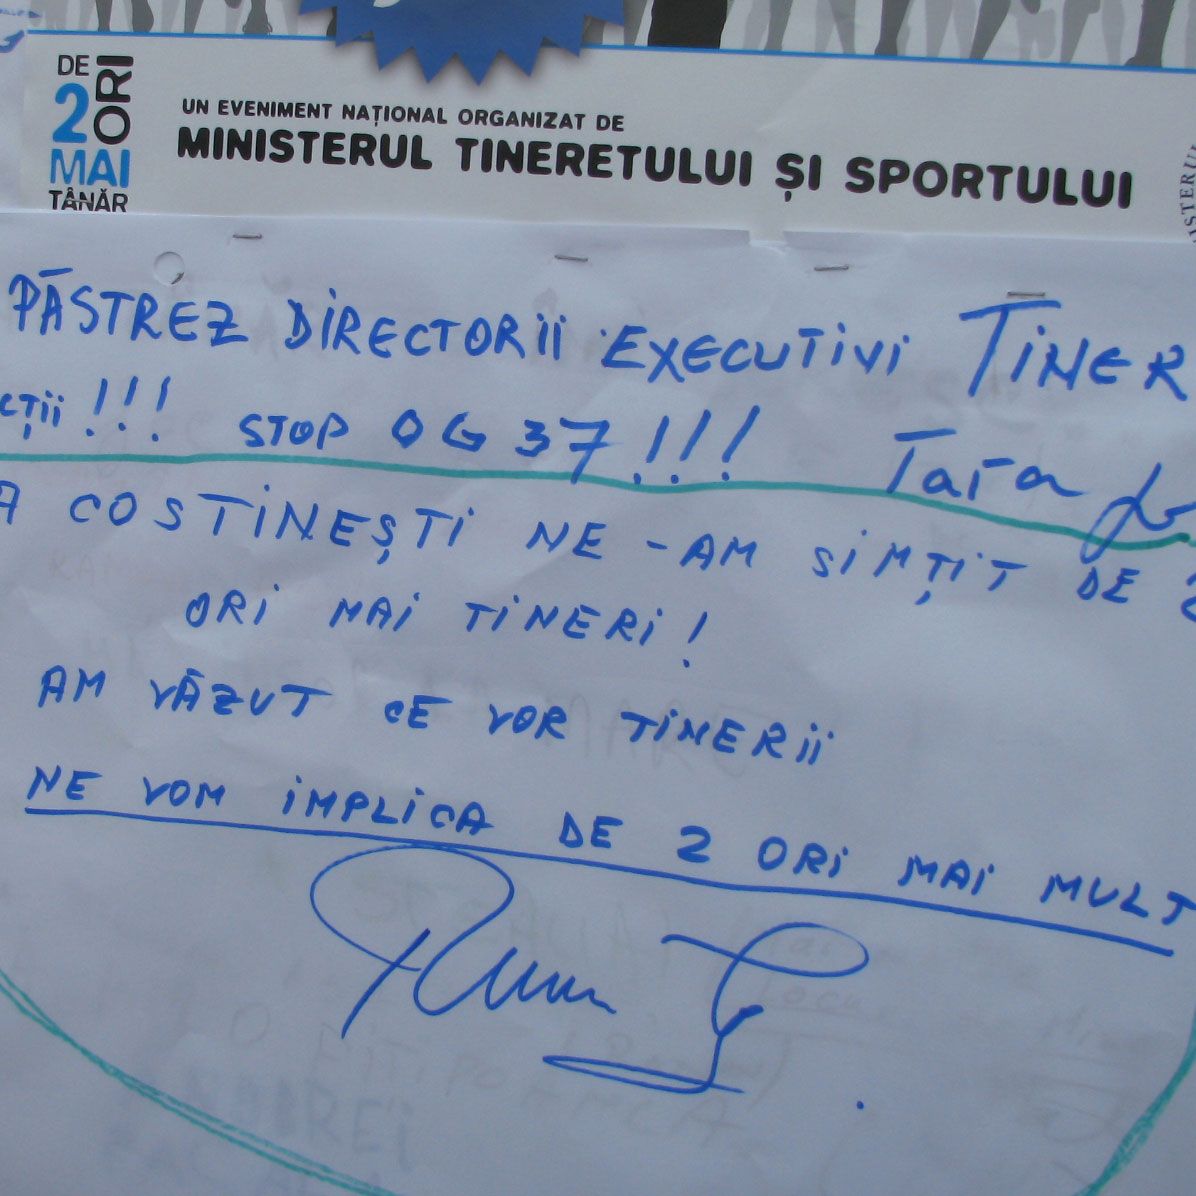 DE 2 ORI
MAI
TÂNĂR
UN EVENIMENT NAȚIONAL ORGANIZAT DE
MINISTERUL TINERETULUI ȘI SPORTULUI
PĂSTREZ DIRECTORII EXECUTIVI TINER
CȚII!!! STOP OG 37!!! Tata
A COSTINEȘTI NE-AM SIMȚIT DE 2
ORI MAI TINERI!
AM VĂZUT CE VOR TINERII
NE VOM IMPLICA DE 2 ORI MAI MULT